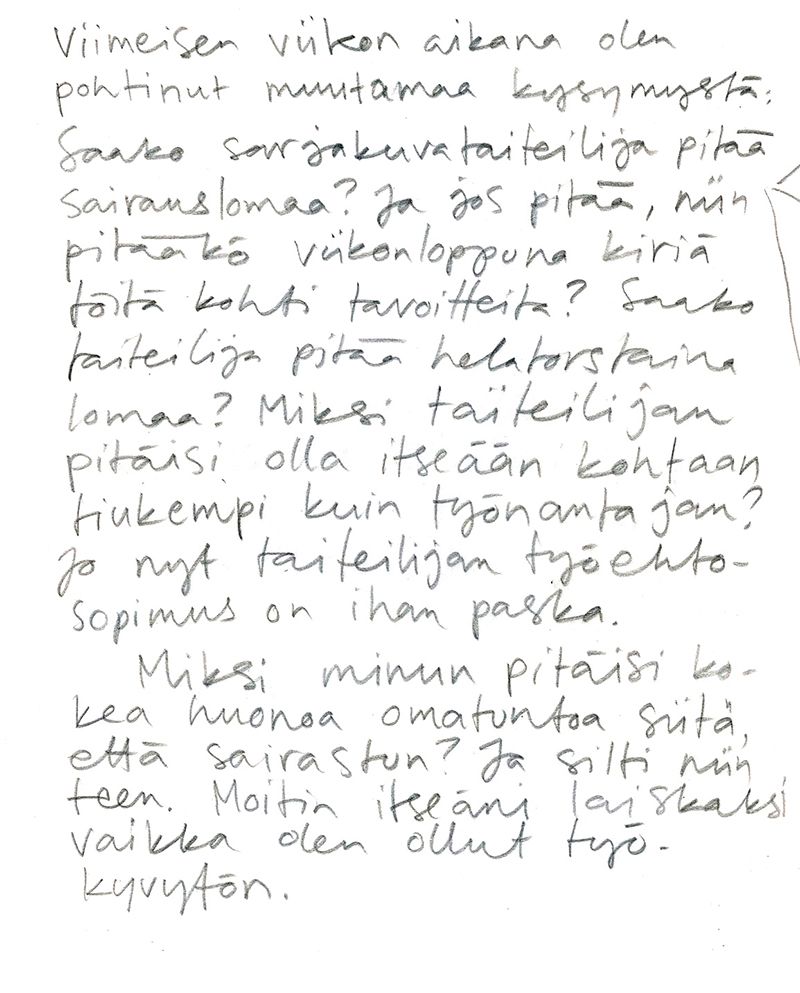 Viimeisen viikon aikana olen
pohtinut muutamaa kysymystä:
Saako sarjakuvataiteilija pitää
sairauslomaa? Ja jos pitää, niin
pitääkö viikonloppuna kiriä
töitä kohti tavoitteita? Saako
taiteilija pitää helatorstaina
lomaa? Miksi taiteilijan
pitäisi olla itseään kohtaan
tiukempi kuin työnantajan?
Jo nyt taiteilijan työehto-
sopimus on ihan paska.
Miksi minun pitäisi ko-
kea huonoa omatuntoa siitä,
että sairastun? Ja silti niin
teen. Moitin itseäni laiskaksi
vaikka olen ollut työ-
kyvytön.